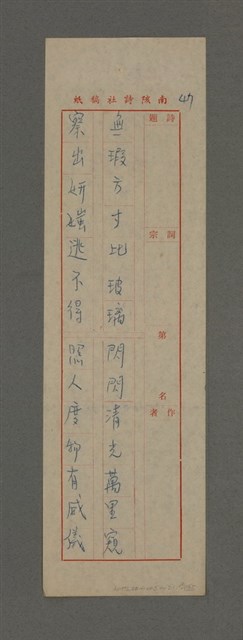 南陔詩社稿紙
47
詩題
詞宗
第 名
作者
無瑕方寸比玻璃 閃閃清光萬里窺
察出妍媸逃不得 照人度物有威儀